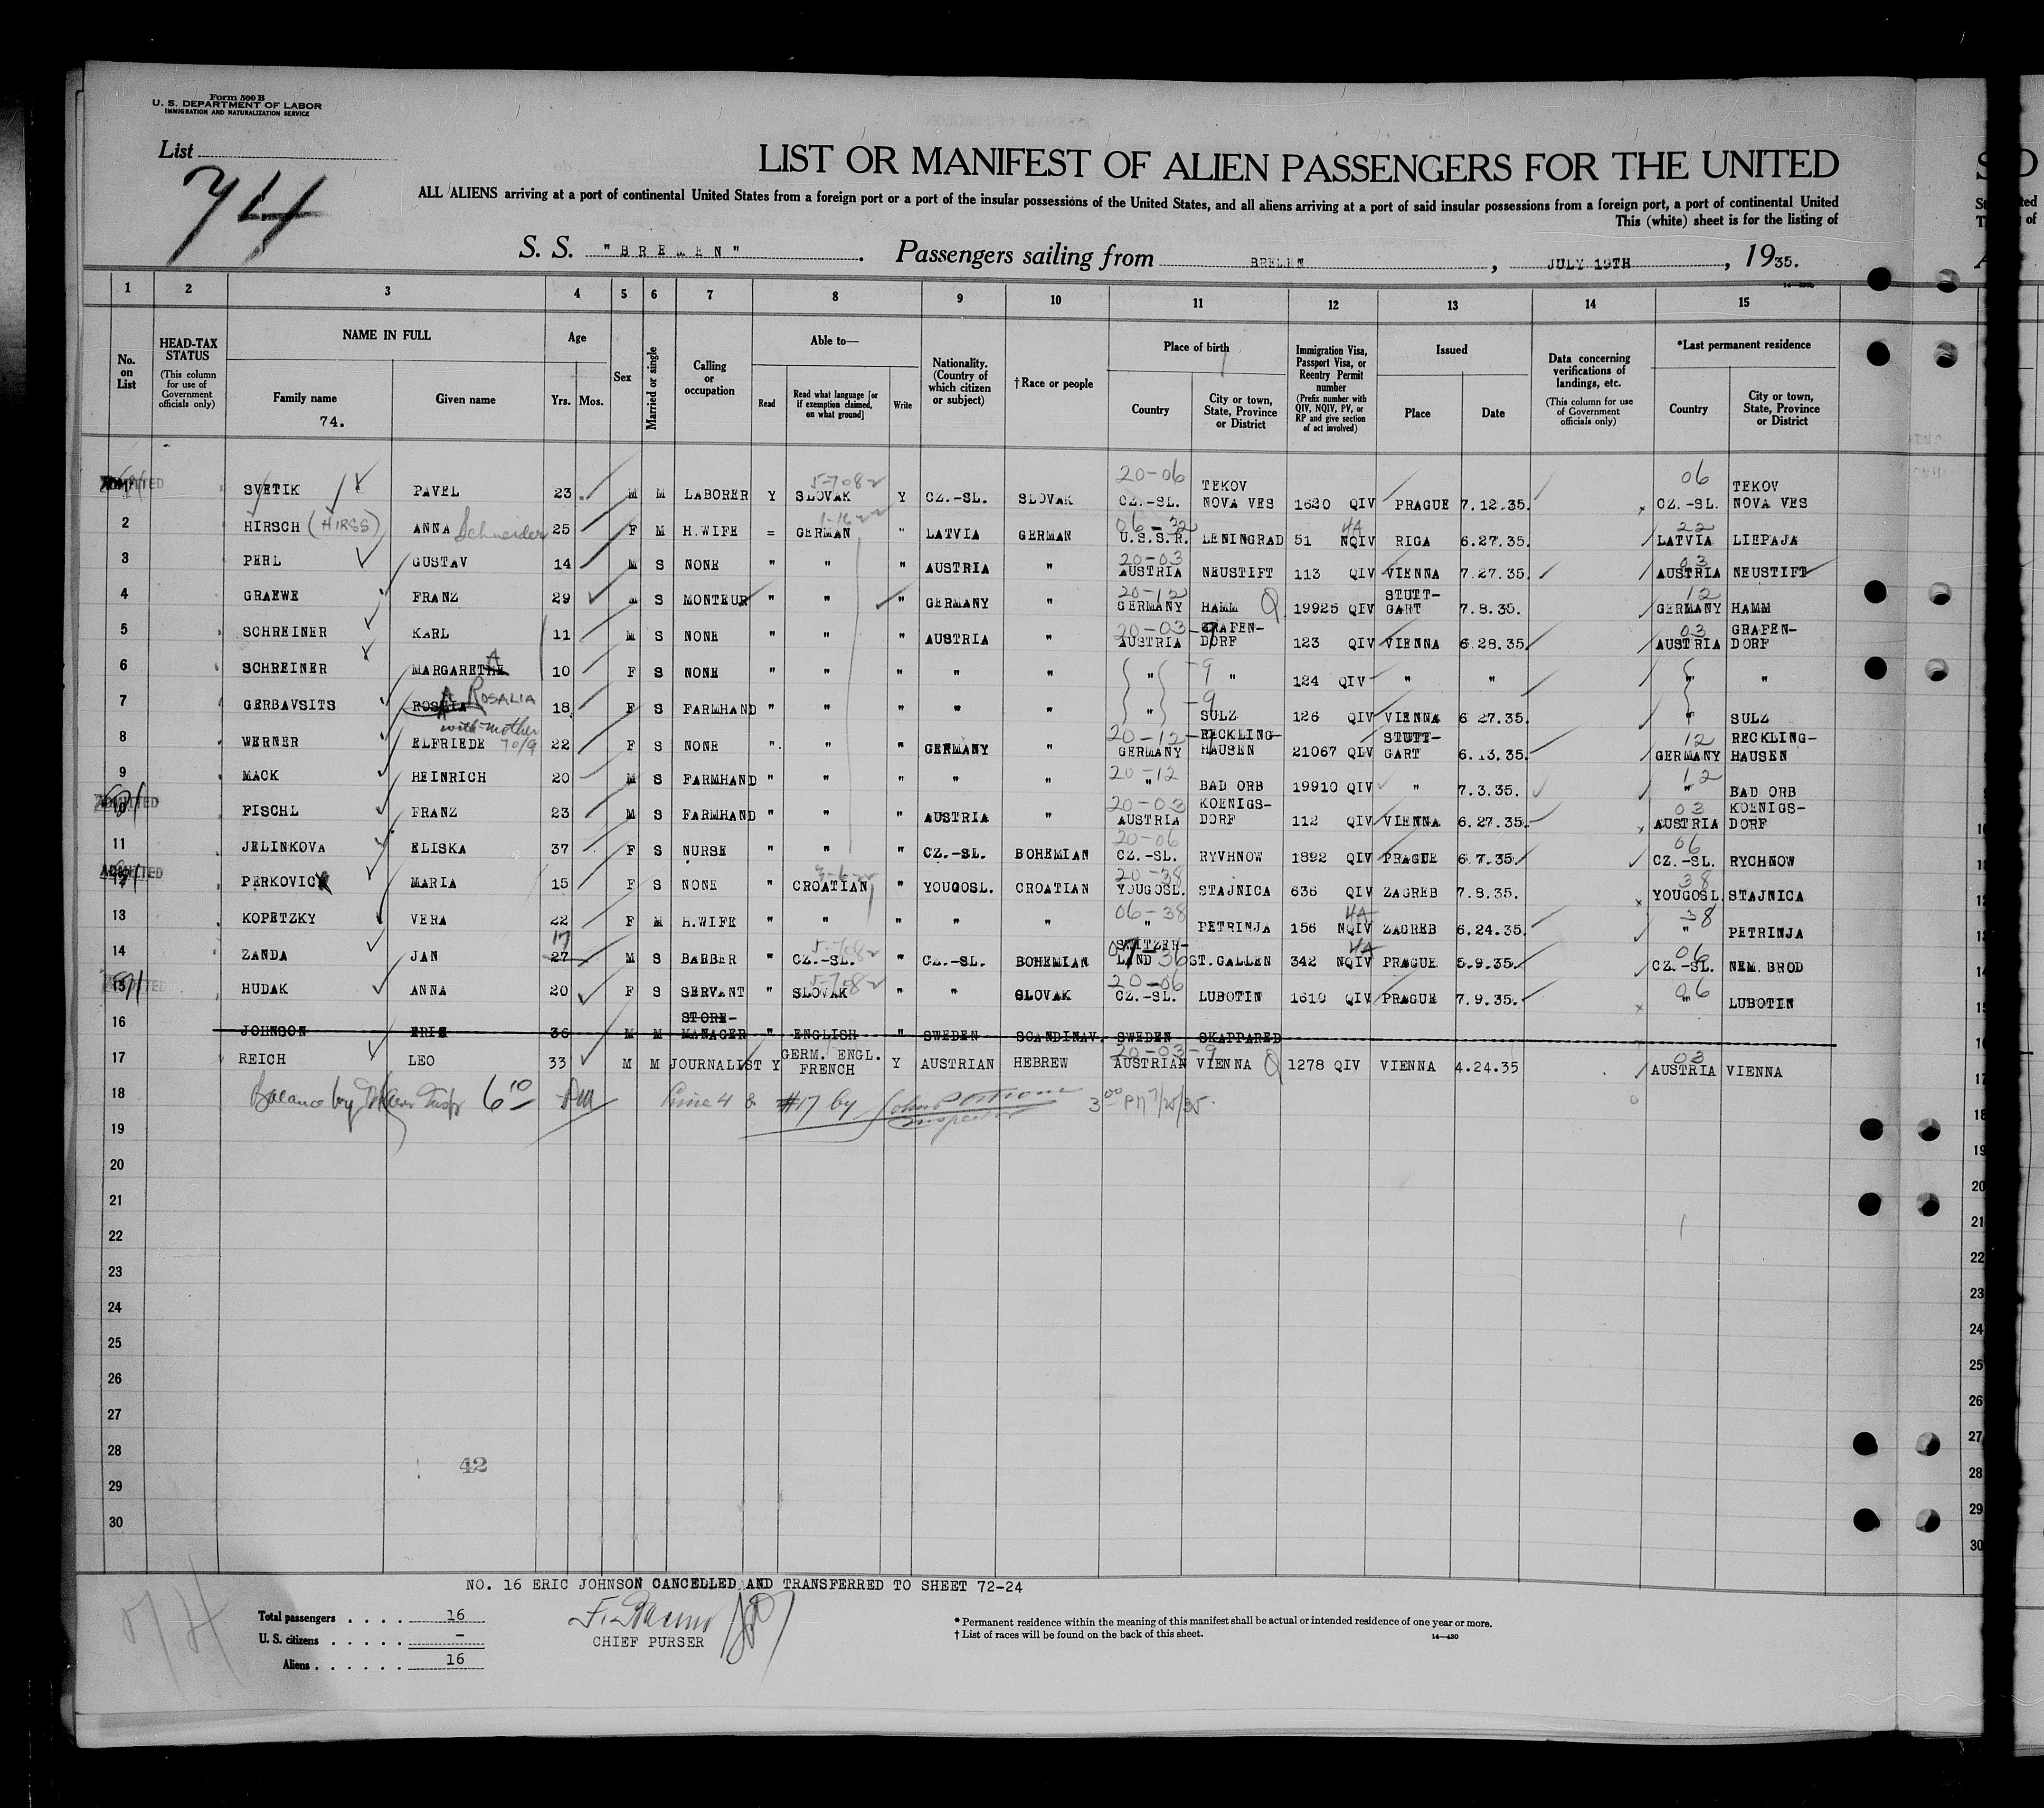 Form 500 B
U. S. DEPARTMENT OF LABOR
IMMIGRATION AND NATURALIZATION SERVICE
List
74
LIST OR MANIFEST OF ALIEN PASSENGERS FOR THE UNITED
ALL ALIENS arriving at a port of continental United States from a foreign port or a port of the insular possessions of the United States, and all aliens arriving at a port of said insular possessions from a foreign port, a port of continental United
This (white) sheet is for the listing of
S. S. "BREMEN". Passengers sailing from BREMEN, JULY 19TH, 1935.
1 2 3 4 5 6 7 8 9 10 11 12 13 14 15
No. on List
HEAD-TAX STATUS (This column for use of Government officials only)
NAME IN FULL
Family name 74.
Given name
Age Yrs. Mos.
Sex
Married or single
Calling or occupation
Able to—
Read
Read what language [or if exemption claimed, on what ground]
Write
Nationality. (Country of which citizen or subject)
†Race or people
Place of birth
Country
City or town, State, Province or District
Immigration Visa, Passport Visa, or Reentry Permit number (Prefix number with QIV, NQIV, PV, or RP and give section of act involved)
Issued
Place
Date
Data concerning verifications of landings, etc. (This column for use of Government officials only)
*Last permanent residence
Country
City or town, State, Province or District
ADMITTED SVETIK PAVEL 23 M M LABORER Y SLOVAK 5-708 Y CZ.-SL. SLOVAK 20-06 CZ.-SL. TEKOV NOVA VES 1620 QIV PRAGUE 7.12.35. 06 CZ.-SL. TEKOV NOVA VES
2 HIRSCH (HIRSS) ANNA Schneider 25 F M H.WIFE = GERMAN " LATVIA GERMAN 06-32 U.S.S.R. LENINGRAD 51 4A NQIV RIGA 6.27.35. 22 LATVIA LIEPAJA
3 PERL GUSTAV 14 M S NONE " " " AUSTRIA " 20-03 AUSTRIA NEUSTIFT 113 QIV VIENNA 7.27.35. 03 AUSTRIA NEUSTIFT
4 GRAEWE FRANZ 29 M S MONTEUR " " " GERMANY " 20-12 GERMANY HAMM 19925 QIV STUTT-GART 7.8.35. 12 GERMANY HAMM
5 SCHREINER KARL 11 M S NONE " " " AUSTRIA " 20-03-9 AUSTRIA GRAFEN-DORF 123 QIV VIENNA 6.28.35. 03 AUSTRIA GRAFEN-DORF
6 SCHREINER MARGARETHE A 10 F S NONE " " " " " " -9 " 124 QIV " " " "
7 GERBAVSITS ROSALIA 18 F S FARMHAND " " " " " " -9 SULZ 126 QIV VIENNA 6 27.35. " SULZ
8 WERNER ELFRIEDE with mother 70/9 22 F S NONE " " " GERMANY " 20-12 GERMANY RECKLING-HAUSEN 21067 QIV STUTT-GART 6.13.35. 12 GERMANY RECKLING-HAUSEN
9 MACK HEINRICH 20 M S FARMHAND " " " " " 20-12 " BAD ORB 19910 QIV " 7.3.35. 12 " BAD ORB
ADMITTED 10 FISCHL FRANZ 23 M S FARMHAND " " " AUSTRIA " 20-03 AUSTRIA KOENIGS-DORF 112 QIV VIENNA 6.27.35. 03 AUSTRIA KOENIGS-DORF
11 JELINKOVA ELISKA 37 F S NURSE " " " CZ.-SL. BOHEMIAN 20-06 CZ.-SL. RYVHNOW 1892 QIV PRAGUE 6 7.35. 06 CZ.-SL. RYCHNOW
ADMITTED 12 PERKOVIC MARIA 15 F S NONE " CROATIAN " YOUGOSL. CROATIAN 20-38 YOUGOSL. STAJNICA 636 QIV ZAGREB 7.8.35. 38 YOUGOSL. STAJNICA
13 KOPETZKY VERA 22 F M H.WIFE " " " " " 06-38 " PETRINJA 156 4A NQIV ZAGREB 6.24.35. 38 " PETRINJA
14 ZANDA JAN 27 17 M S BARBER " CZ.-SL. 5-708 " CZ.-SL. BOHEMIAN SWITZER-LAND 36 ST.GALLEN 342 4A NQIV PRAGUE 5.9.35. 06 CZ.-SL. NEM.BROD
ADMITTED 15 HUDAK ANNA 20 F S SERVANT " SLOVAK 5-708 " " SLOVAK 20-06 CZ.-SL. LUBOTIN 1610 QIV PRAGUE 7.9.35. 06 " LUBOTIN
16 JOHNSON ERIC 36 M M STORE-MANAGER " ENGLISH " SWEDEN SCANDINAV. SWEDEN SKAPPARED
17 REICH LEO 33 M M JOURNALIST Y GERM. ENGL. FRENCH Y AUSTRIAN HEBREW 20-03-9 AUSTRIAN VIENNA 1278 QIV VIENNA 4.24.35 03 AUSTRIA VIENNA
18 Balance by Insp 6 10 PM Line 4 & #17 by Inspector 3 00 PM 7/25/35.
19
20
21
22
23
24
25
26
27
28
42
29
30
NO. 16 ERIC JOHNSON CANCELLED AND TRANSFERRED TO SHEET 72-24
Total passengers . . . . 16
U. S. citizens . . . . . –
Aliens . . . . . . 16
CHIEF PURSER
* Permanent residence within the meaning of this manifest shall be actual or intended residence of one year or more.
† List of races will be found on the back of this sheet.
14—430